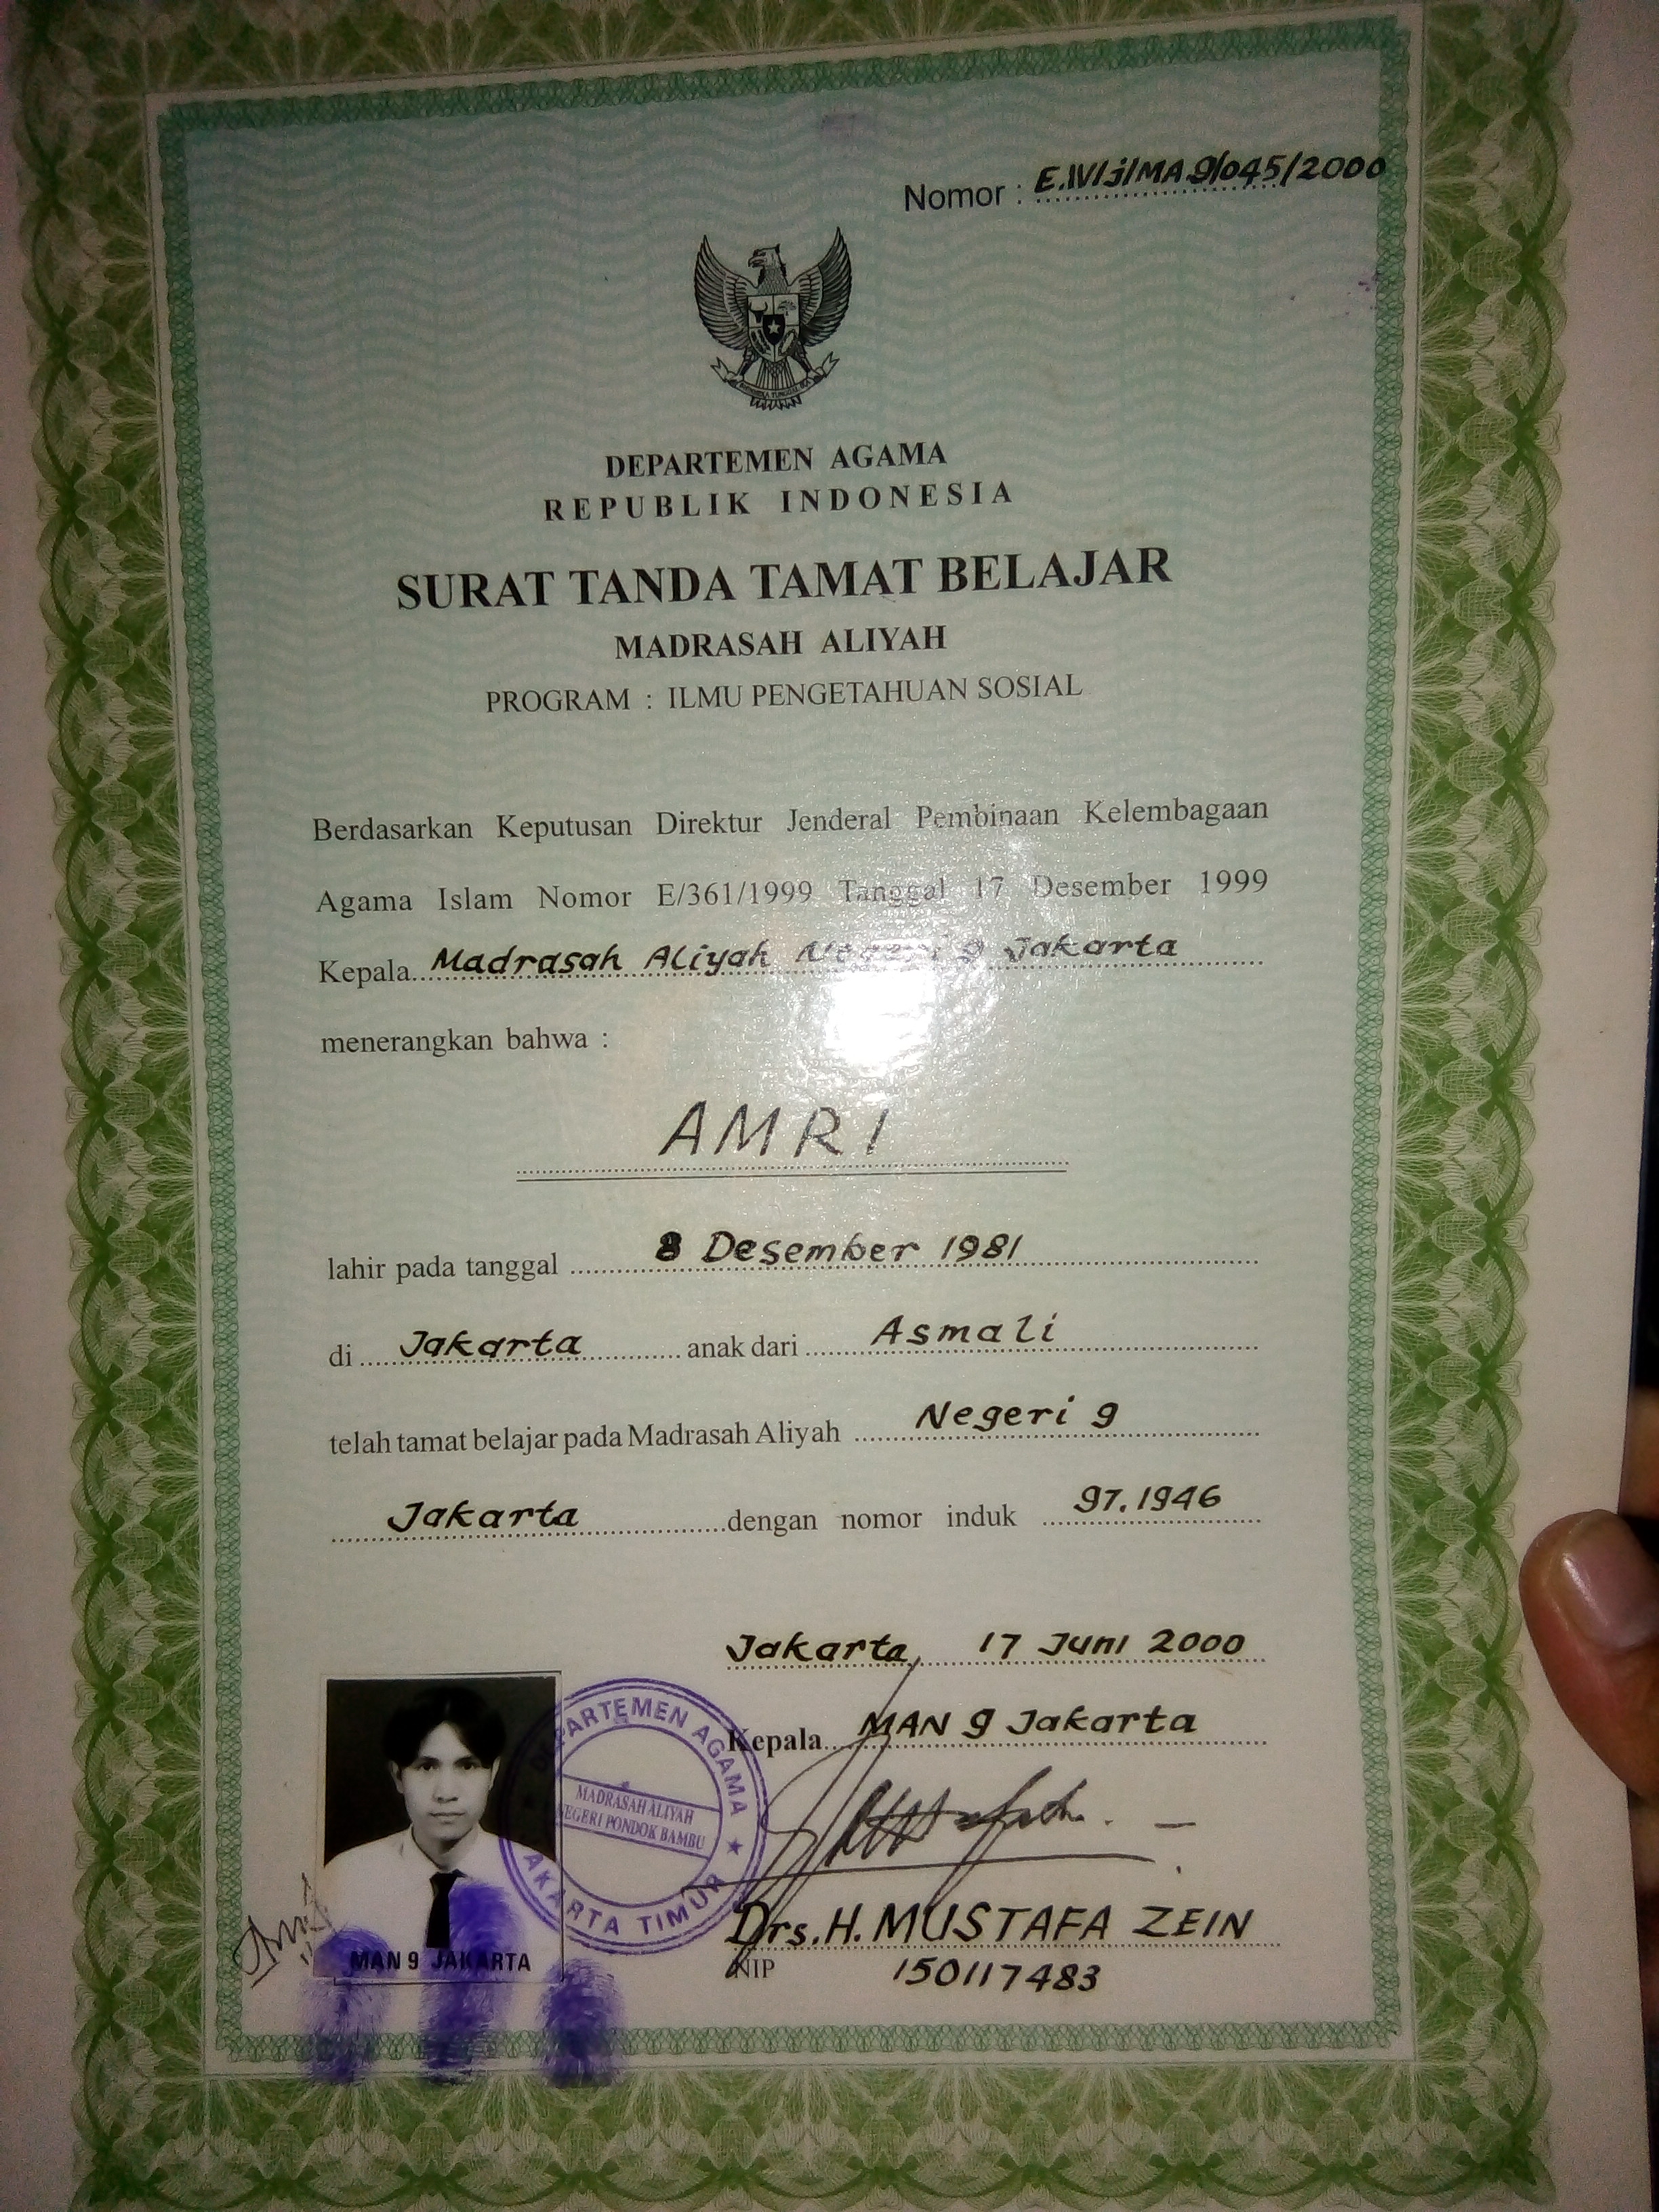 Nomor : E.IV/j/MA.9/045/2000
DEPARTEMEN AGAMA
REPUBLIK INDONESIA
SURAT TANDA TAMAT BELAJAR
MADRASAH ALIYAH
PROGRAM : ILMU PENGETAHUAN SOSIAL
Berdasarkan Keputusan Direktur Jenderal Pembinaan Kelembagaan
Agama Islam Nomor E/361/1999 Tanggal 17 Desember 1999
Kepala Madrasah Aliyah Negeri 9 Jakarta
menerangkan bahwa :
AMRI
lahir pada tanggal 8 Desember 1981
di Jakarta anak dari Asmali
telah tamat belajar pada Madrasah Aliyah Negeri 9
Jakarta dengan nomor induk 97.1946
Jakarta, 17 Juni 2000
Kepala MAN 9 Jakarta
DEPARTEMEN AGAMA
MADRASAH ALIYAH
NEGERI PONDOK BAMBU
JAKARTA TIMUR
Drs.H.MUSTAFA ZEIN
NIP 150117483
MAN 9 JAKARTA